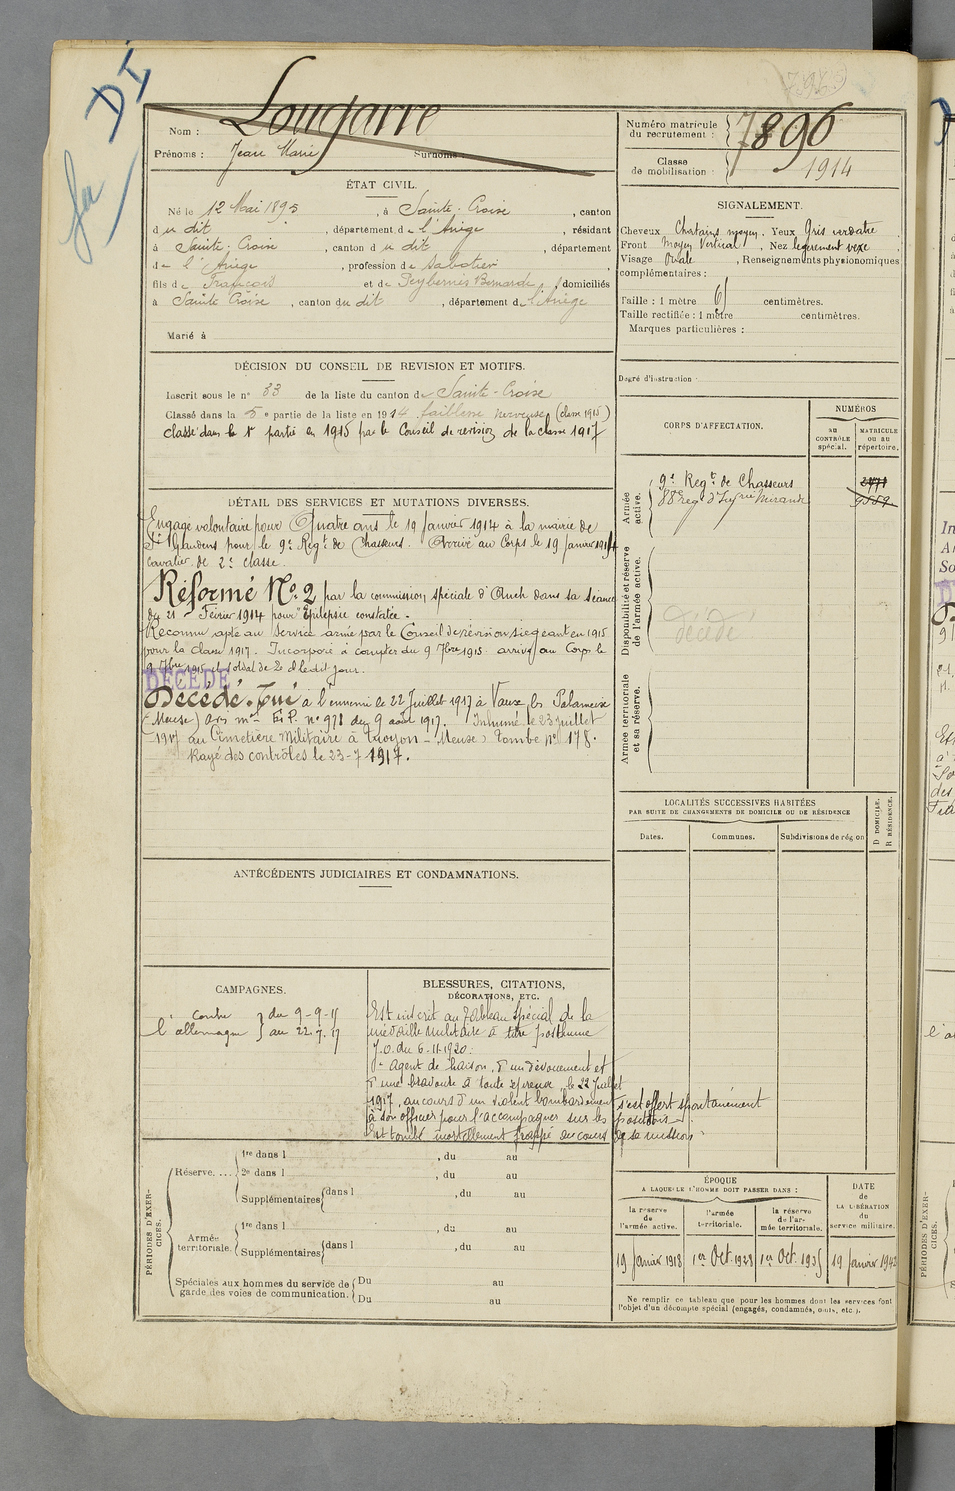 Nom : Lougarre
Prénoms : Jean Marie Surnoms :
Numéro matricule
du recrutement : 7896
Classe
de mobilisation : 1914
ÉTAT CIVIL.
Né le 12 Mai 1895, à Sainte-Croise, canton
du dit, département de l'Ariège, résidant
à Sainte-Croise, canton du dit, département
de l'Ariège, profession de Sabotier
fils de François et de Peybernès Bernarde, domiciliés
à Sainte Croise, canton du dit, département de l'Ariège
Marié à
SIGNALEMENT.
Cheveux Chatains moyen. Yeux Gris verdatre
Front Moyen Vertical, Nez legerement vexe
Visage Ovale, Renseignements physionomiques
complémentaires :
Taille : 1 mètre 61 centimètres.
Taille rectifiée : 1 mètre centimètres.
Marques particulières :
Degré d'instruction
DÉCISION DU CONSEIL DE REVISION ET MOTIFS.
Inscrit sous le n° 33 de la liste du canton de Sainte-Croise
Classé dans la 5e partie de la liste en 1914 faiblesse nerveuse (classe 1915)
classé dans la 1e partie en 1915 par le Conseil de revision de la classe 1917
CORPS D'AFFECTATION.
NUMÉROS
au
CONTRÔLE
spécial.
MATRICULE
ou au
répertoire.
Armée
active.
9e Regt de Chasseurs
88e reg d'Infrie Mirande
Disponibilité et réserve
de l'armée active.
décédé
Armée territoriale
et sa réserve.
DÉTAIL DES SERVICES ET MUTATIONS DIVERSES.
Engagé volontaire pour Quatre ans le 19 Janvier 1914 à la mairie de
St Gaudens pour le 9e Regt de Chasseurs. Arrivé au Corps le 19 Janvier 1914
cavalier de 2e classe.
Réformé No 2 par la commission spéciale d'Auch dans sa séance
du 21 Février 1914 pour "Epilepsie constatée".
Reconnu apte au service armé par le Conseil de révision siégeant en 1915
pour la classe 1917. Incorporé à compter du 9 7bre 1915. arrivé au Corps le
9 7bre 1915 et soldat de 2e cl le dit jour.
DÉCÉDÉ
Décédé. Tué à l'ennemi le 22 Juillet 1917 à Vaux les Palameix
(Meuse) avis mel n° 971 du 9 août 1917. Inhumé le 23 juillet
1917 au Cimetière Militaire à Troyon - Meuse) tombe N° 178.
Rayé des contrôles le 23-7-1917.
LOCALITÉS SUCCESSIVES HABITÉES
PAR SUITE DE CHANGEMENTS DE DOMICILE OU DE RÉSIDENCE
Dates.
Communes.
Subdivisions de région
D DOMICILE.
R RÉSIDENCE.
ANTÉCÉDENTS JUDICIAIRES ET CONDAMNATIONS.
CAMPAGNES.
Contre } du 9-9-15
l'allemagne } au 22.7.17
BLESSURES, CITATIONS,
DÉCORATIONS, ETC.
Est inscrit au Tableau spécial de la
médaille militaire à titre posthume
J.O. du 6-11-1920:
Agent de liaison, d'un dévouement et
d'une bravoure à toute épreuve, le 22 Juillet
1917, au cours d'un violent bombardement s'est offert spontanément
à son officier pour l'accompagner sur les positions.
Est tombé mortellement frappé au cours de sa mission.
PÉRIODES D'EXERCICES.
Réserve....
1re dans l , du au
2e dans l , du au
Supplémentaires dans l , du au
Armée
territoriale.
1re dans l , du au
Supplémentaires dans l , du au
Spéciales aux hommes du service de
garde des voies de communication.
Du au
Du au
ÉPOQUE
A LAQUELLE L'HOMME DOIT PASSER DANS :
la réserve
de
l'armée active.
l'armée
territoriale.
la réserve
de l'ar-
mée territoriale.
DATE
de
LA LIBÉRATION
du
service militaire.
19 Janvier 1918
1er Oct. 1923
1er Oct. 1935
19 Janvier 1942
Ne remplir ce tableau que pour les hommes dont les services font
l'objet d'un décompte spécial (engagés, condamnés, omis, etc.).